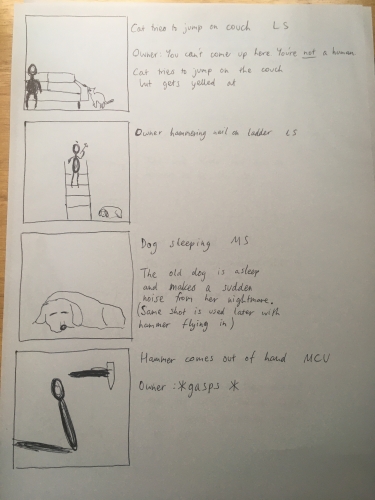 Cat tries to jump on couch LS
Owner: You can't come up here You're not a human
Cat tries to jump on the couch
but gets yelled at
Owner hammering nail on ladder LS
Dog sleeping MS
The old dog is asleep
and makes a sudden
noise from her nightmare.
(Same shot is used later with
hammer flying in)
Hammer comes out of hand MCU
Owner: *gasps*